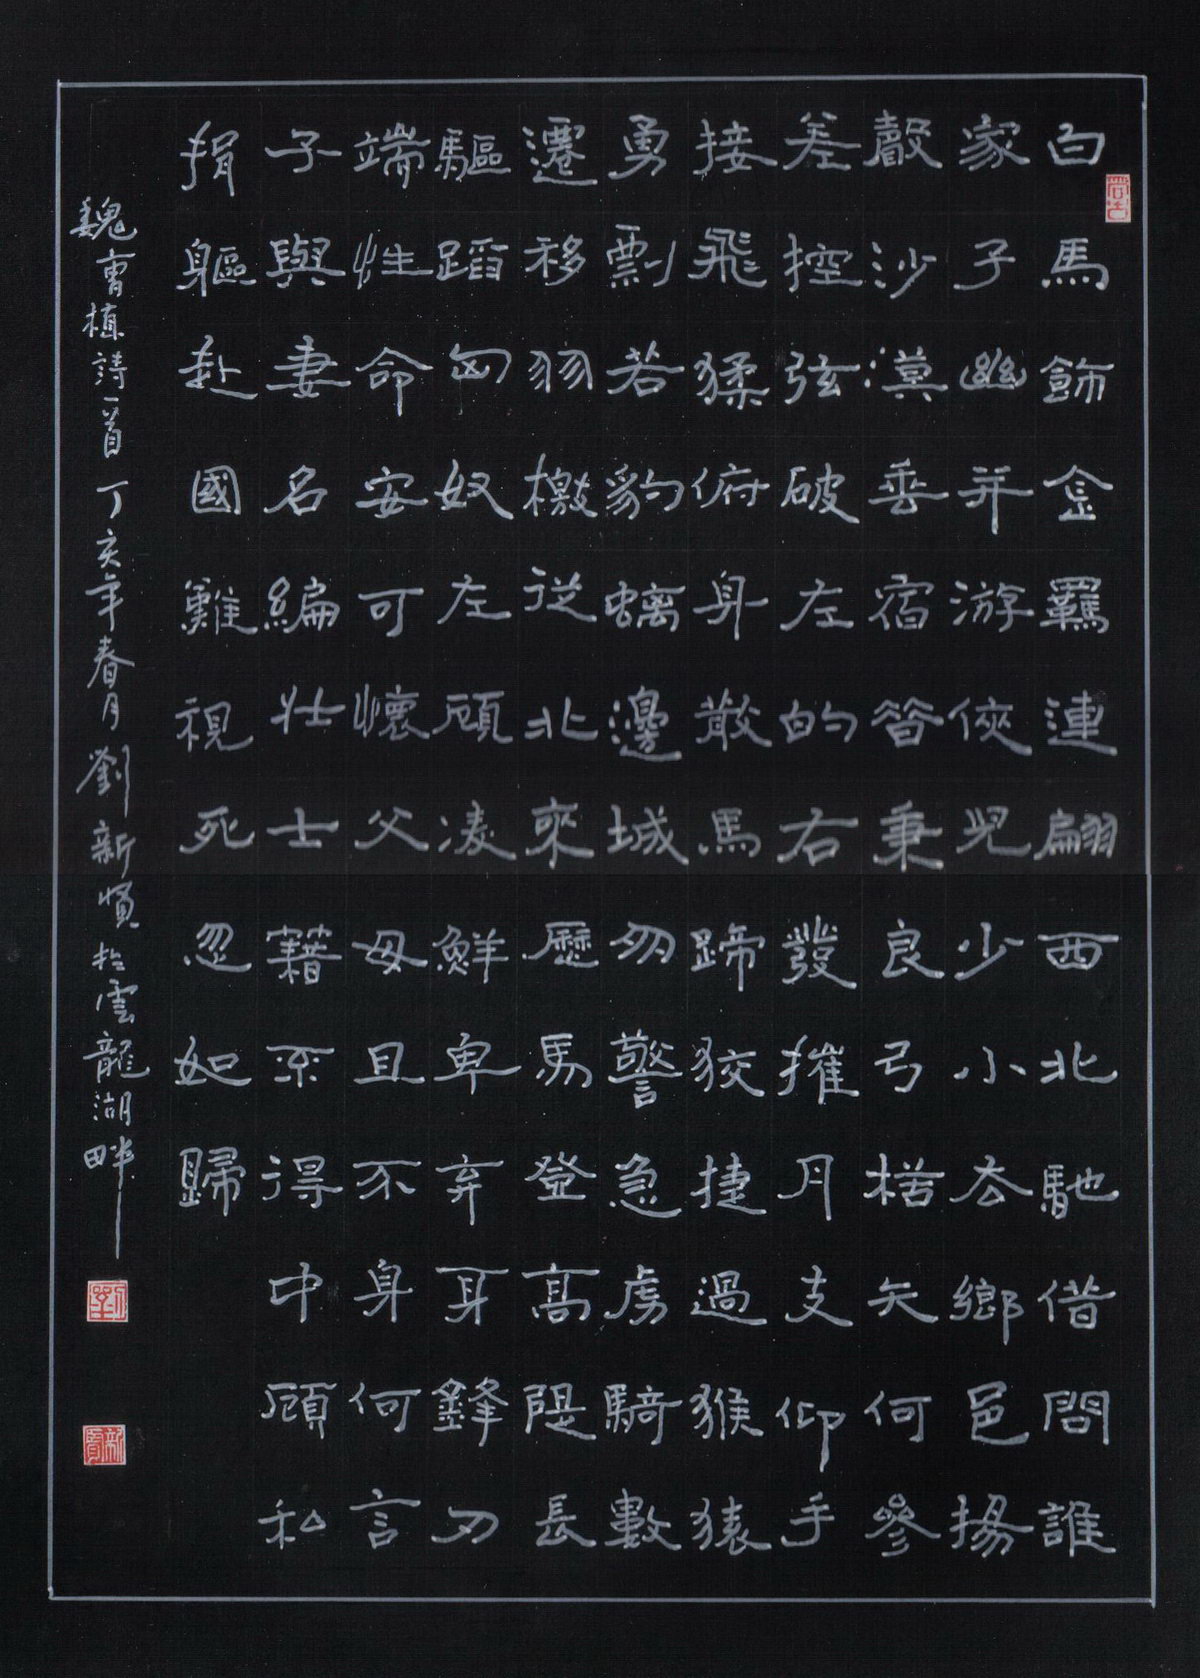 白馬飾金羈連翩西北馳借問誰
家子幽并游俠兒少小去鄉邑揚
聲沙漠垂宿昔秉良弓楛矢何參
差控弦破左的右發摧月支仰手
接飛猱俯身散馬蹄狡捷過猴猿
勇剽若豹螭邊城多警急虜騎數
遷移羽檄從北來歷馬登高隄長
驅蹈匈奴左顧凌鮮卑弃身鋒刃
端性命安可懷父母且不身何言
子與妻名編壯士籍不得中顧私
捐軀赴國難視死忽如歸
魏曹植詩一首 丁亥年春月劉新賢於雲龍湖畔
劉
新賢